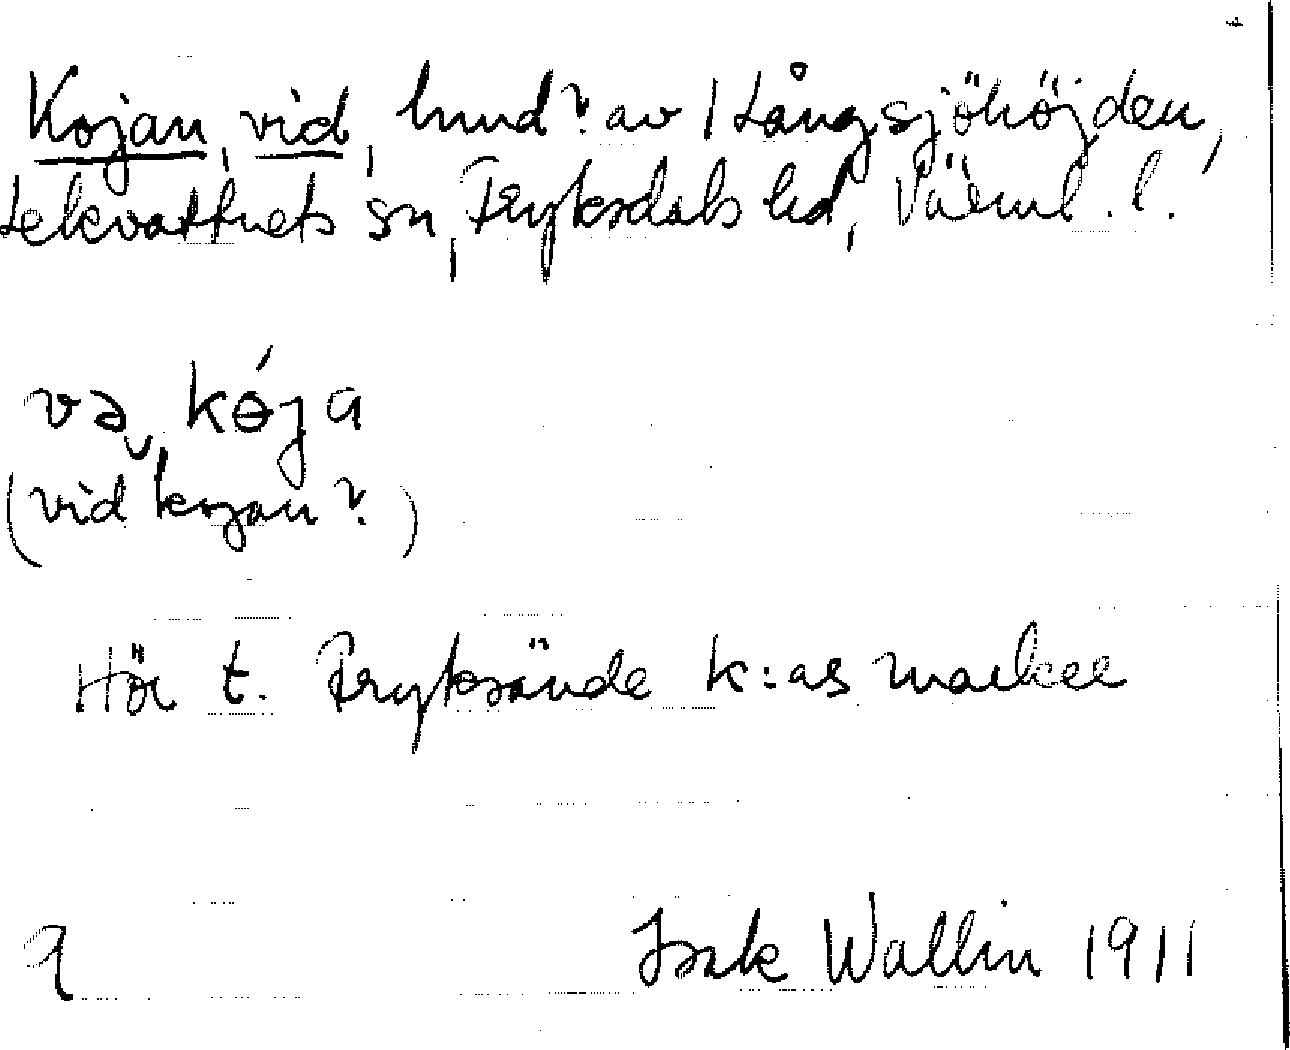 Kojan, vid, hmd? av 1 Långsjöhöjden,
Lekvattnets sn, Fryksdals hd, Värml. l.
və kója
(vid kojan?)
Hör t. Fryksände k:as marker
9
Isak Wallin 1911